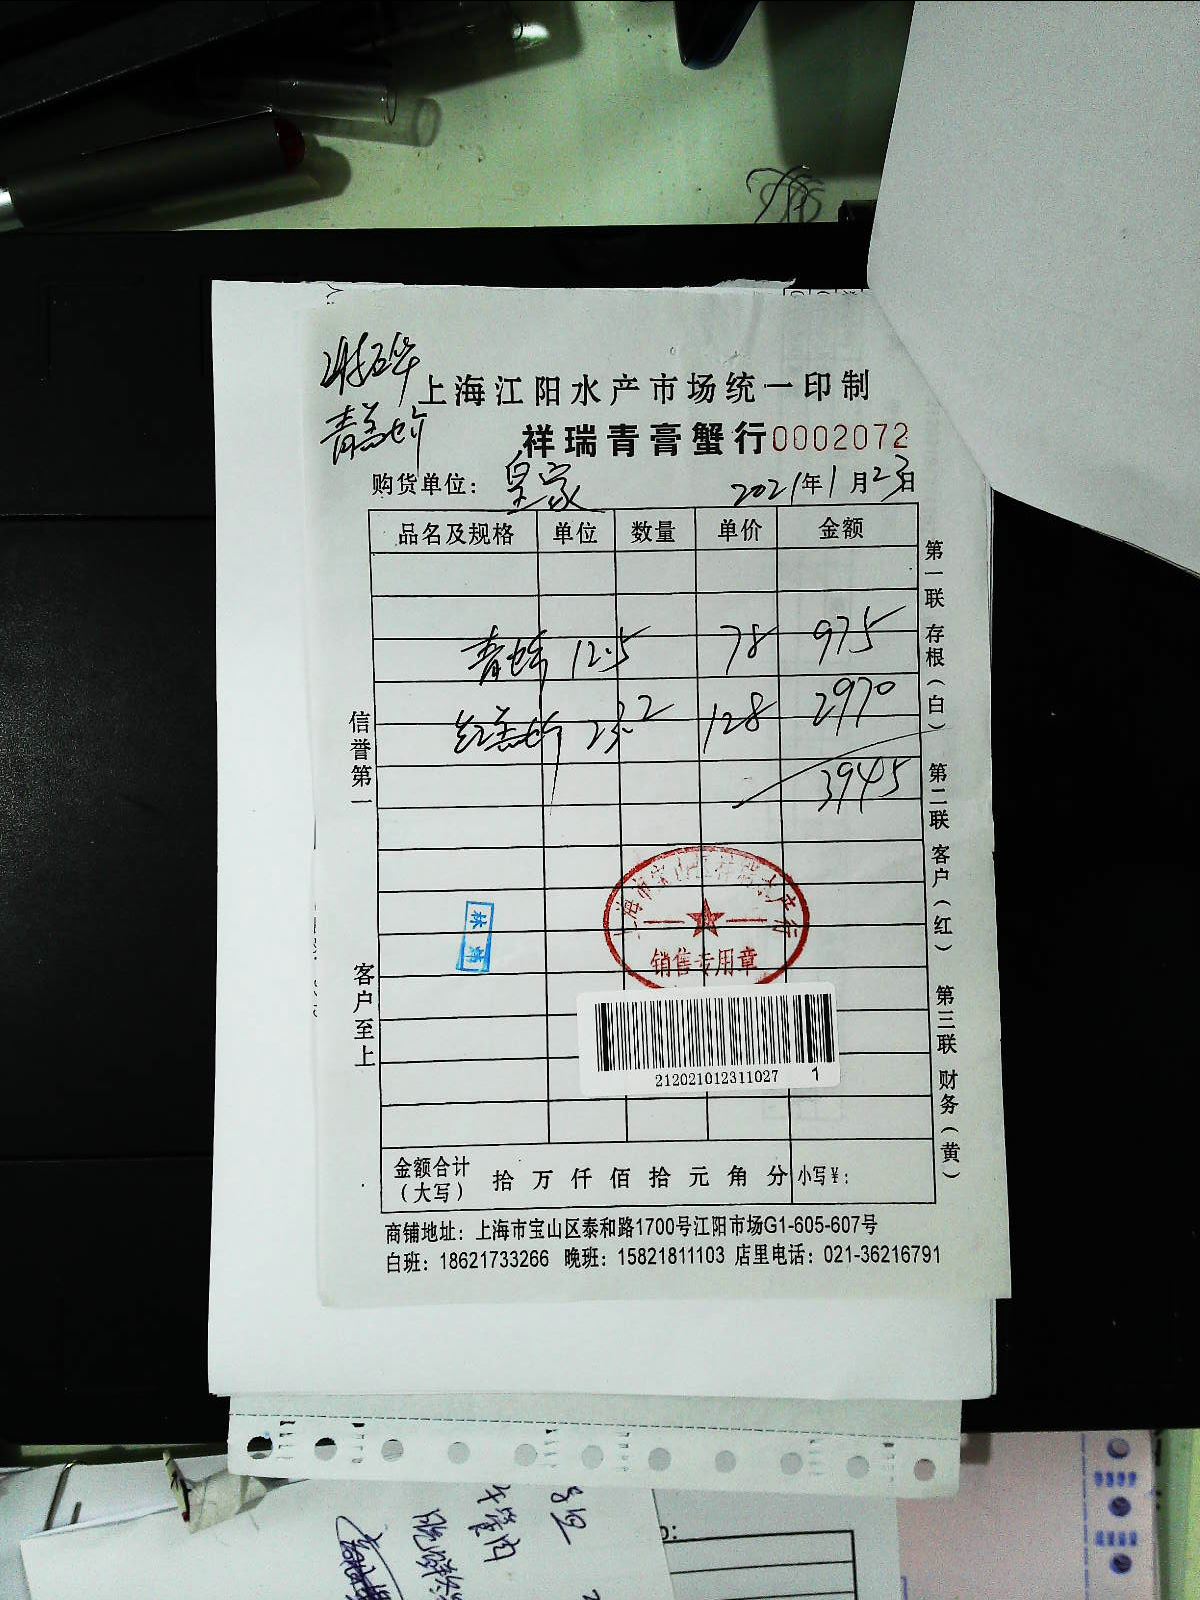 上海江阳水产市场统一印制
祥瑞青膏蟹行0002072
购货单位： 皇家 2021年1月23日
品名及规格 单位 数量 单价 金额
青 12.5 78 975
红膏 23.2 128 2970
3945
信誉第一
客户至上
第一联 存根（白） 第二联 客户（红） 第三联 财务（黄）
销售专用章
212021012311027 1
金额合计（大写） 拾 万 仟 佰 拾 元 角 分 小写￥：
商铺地址：上海市宝山区泰和路1700号江阳市场G1-605-607号
白班：18621733266 晚班：15821811103 店里电话：021-36216791